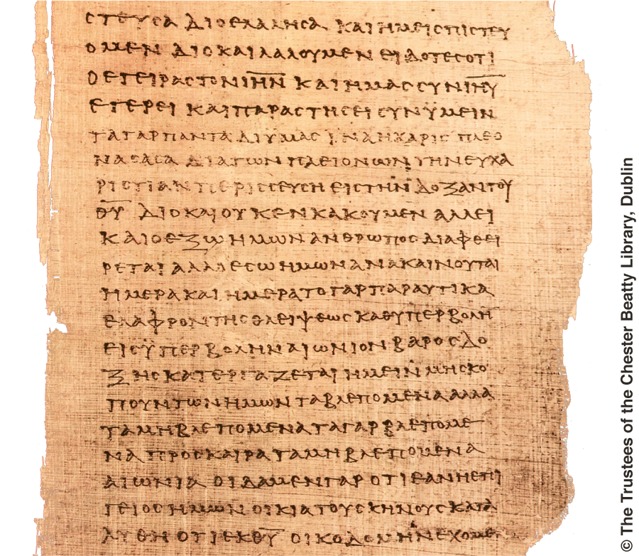 ϹΤΕΥϹΑ ΔΙΟΕΛΑΛΗϹΑ ΚΑΙΗΜΕΙϹΠΙϹΤΕΥ
ΟΜΕΝ ΔΙΟΚΑΙΛΑΛΟΥΜΕΝ ΕΙΔΟΤΕϹΟΤΙ
ΟΕΓΕΙΡΑϹΤΟΝΙ̅Η̅Ν̅ ΚΑΙΗΜΑϹϹΥΝΙ̅Η̅Υ̅
ΕΓΕΡΕΙ ΚΑΙΠΑΡΑϹΤΗϹΕΙϹΥΝΫΜΕΙΝ
ΤΑΓΑΡΠΑΝΤΑΔΙΥΜΑϹ ΙΝΑΗΧΑΡΙϹ ΠΛΕΟ
ΝΑϹΑϹΑ ΔΙΑΤΩΝΠΛΕΙΟΝΩΝΤΗΝΕΥΧΑ
ΡΙϹΤΙΑΝΠΕΡΙϹϹΕΥϹΗ ΕΙϹΤΗΝΔΟΞΑΝΤΟΥ
Θ̅Υ̅ ΔΙΟΚΑΙΟΥΚΕΝΚΑΚΟΥΜΕΝ ΑΛΛΕΙ
ΚΑΙΟΕΞΩΗΜΩΝΑΝΘΡΩΠΟϹΔΙΑΦΘΕΙ
ΡΕΤΑΙ ΑΛΛΟΕϹΩΗΜΩΝΑΝΑΚΑΙΝΟΥΤΑΙ
ΗΜΕΡΑΚΑΙΗΜΕΡΑΤΟΓΑΡΠΑΡΑΥΤΙΚΑ
ΕΛΑΦΡΟΝΤΗϹΘΛΕΙΨΕΩϹΚΑΘΥΠΕΡΒΟΛΗ
ΕΙϹΫΠΕΡΒΟΛΗΝΑΙΩΝΙΟΝΒΑΡΟϹΔΟ
ΞΗϹΚΑΤΕΡΓΑΖΕΤΑΙΗΜΕΙΝΜΗϹΚΟ
ΠΟΥΝΤΩΝΗΜΩΝΤΑΒΛΕΠΟΜΕΝΑΑΛΛΑ
ΤΑΜΗΒΛΕΠΟΜΕΝΑΤΑΓΑΡΒΛΕΠΟΜΕ
ΝΑΠΡΟϹΚΑΙΡΑΤΑΜΗΒΛΕΠΟΜΕΝΑ
ΑΙΩΝΙΑ ΟΙΔΑΜΕΝΓΑΡΟΤΙΕΑΝΗΕΠΙ
ΓΕΙΟϹΗΜΩΝΟΙΚΙΑΤΟΥϹΚΗΝΟΥϹΚΑΤΑ
ΛΥΘΗΟΤΙΕΚΘ̅Υ̅ ΟΙΚΟΔΟΜΗΝΕΧΟΜΕ
© The Trustees of the Chester Beatty Library, Dublin